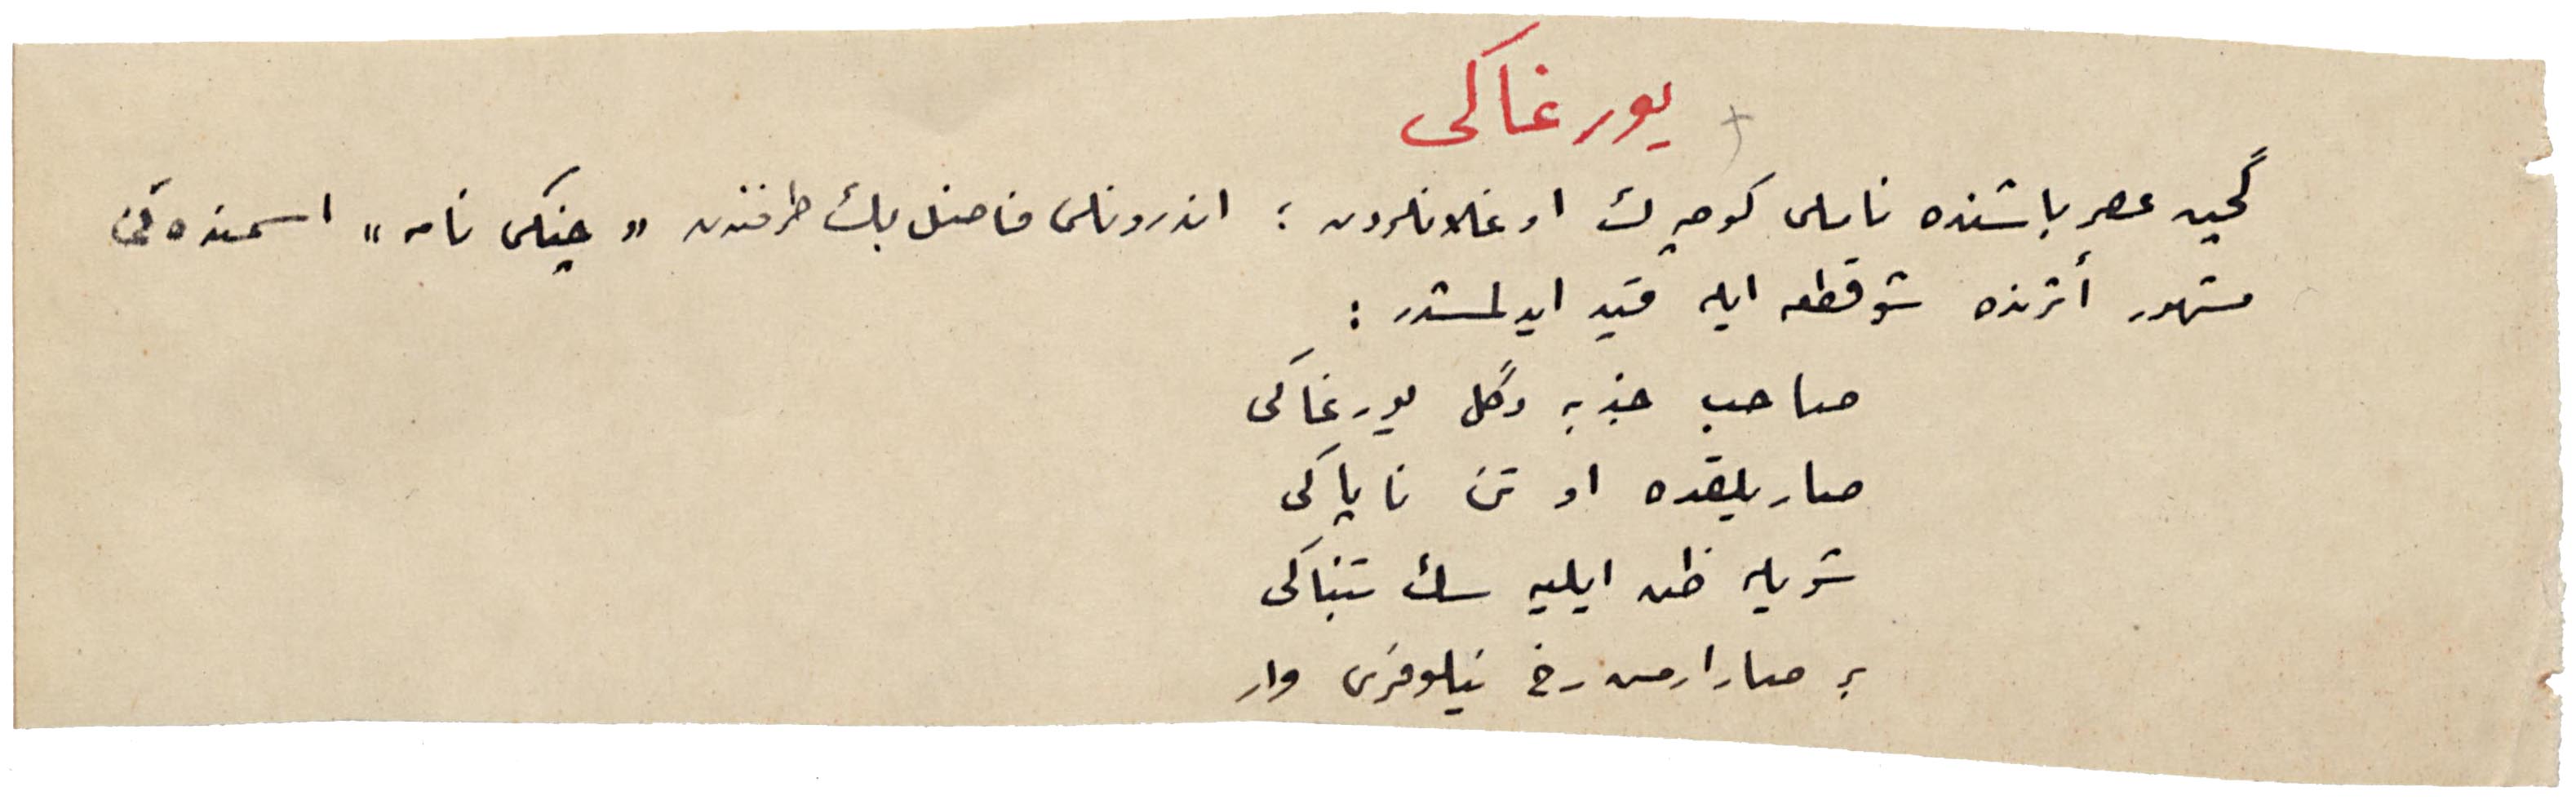 یورغاكی
گچن عصر باشنده ناملی كوچك اوغلانلردن ؛ اندرونلی فاضل بك طرفندن « چنگی نامه » اسمنده كی
مشهور أثرنده شو قطعه ایله قید ایدلمشدر :
صاحب جذبه دگل یورغاكی
صاریلقده او تن ناپاكی
شویله ظن ایلیه سك تنباكی
بر صارارمش رخ نیلوفری وار